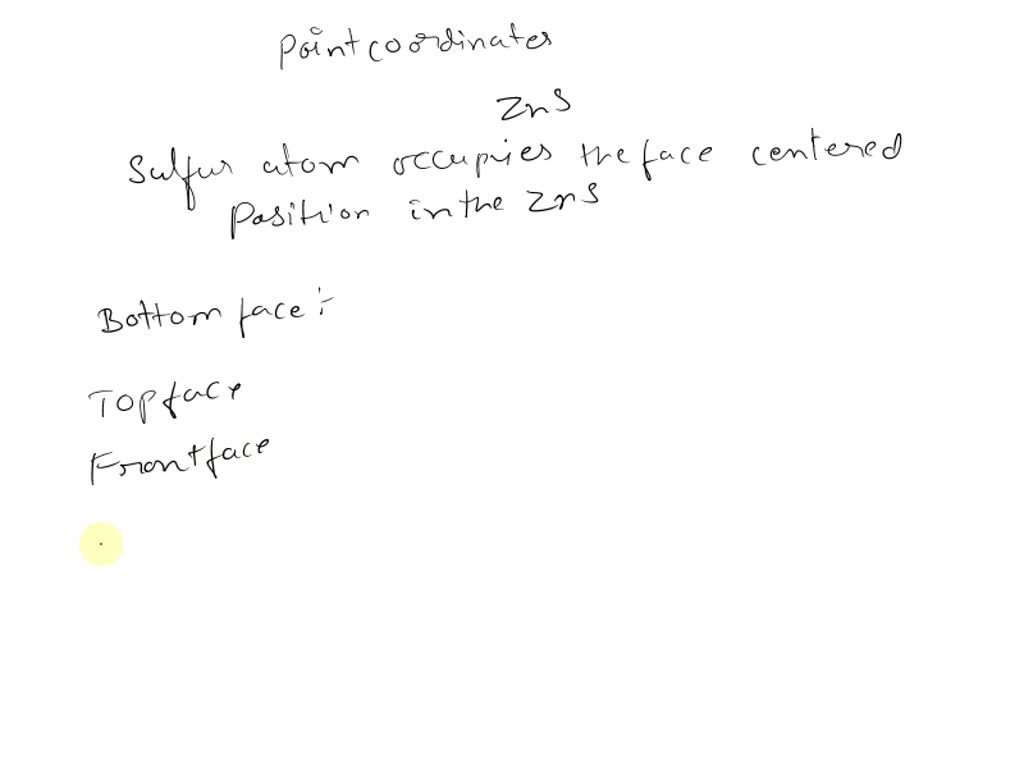 Point coordinates
ZnS
Sulfur atom occupies the face centered
Position in the ZnS
Bottom face :-
Top face
Front face